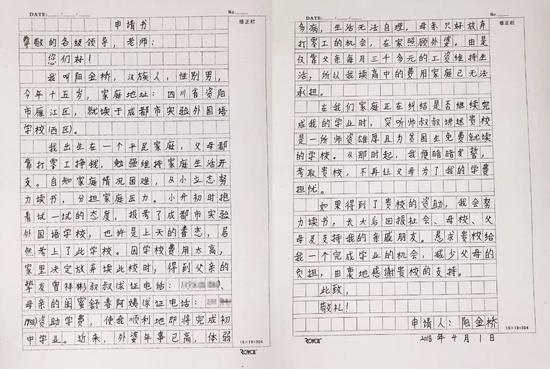 DATE: / /
No
修正栏
申请书
尊敬的各级领导，老师：
您们好！
我叫阳金桥，汉族人，性别男，
今年十五岁，家庭地址：四川省资阳
市雁江区，就读于成都市实验外国语
学校(西区)。
我出生在一个平民家庭，父母都
靠打零工挣钱，勉强维持家庭生活开
支。自知家庭情况困难，从小立志努
力读书，分担家庭压力。小升初时抱
着试一试的态度，报考了成都市实验
外国语学校，也许是上天的眷恋，居
然考上了此学校。因学校费用太高，
家里决定放弃读此校时，得到父亲的
挚友曾祥彬叔叔保证电话：
母亲的闺蜜舒春阿姨保证电话：
资助学费，使我顺利地即将完成初
中学业。近来，外婆年事已高，体弱
ROYCE
16×19=304
DATE: / /
No
修正栏
多病，生活无法自理，母亲只好放弃
打零工的机会，在家照顾外婆。由是
仅靠父亲每月三千多元的工资维持生
活，所以我读高中的费用家庭已无法
承担。
在我们家庭正在纠结是否继续完
成我的学业时，突听师叔叔讲述贵校
是一所师资雄厚且为贫困生免费就读
的学校。从那时起，我便暗暗发誓，
考取贵校，不再让父母为了我的学费
担忧。
如果得到了贵校的资助，我会努
力读书，长大后回报社会、母校、父
母及支持我的亲戚朋友。恳求贵校给
我一个完成学业的机会，减少父母的
负担，由衷地感谢贵校的支持。
此致，
敬礼！
申请人：阳金桥
2018年4月1日
ROYCE
16×19=304